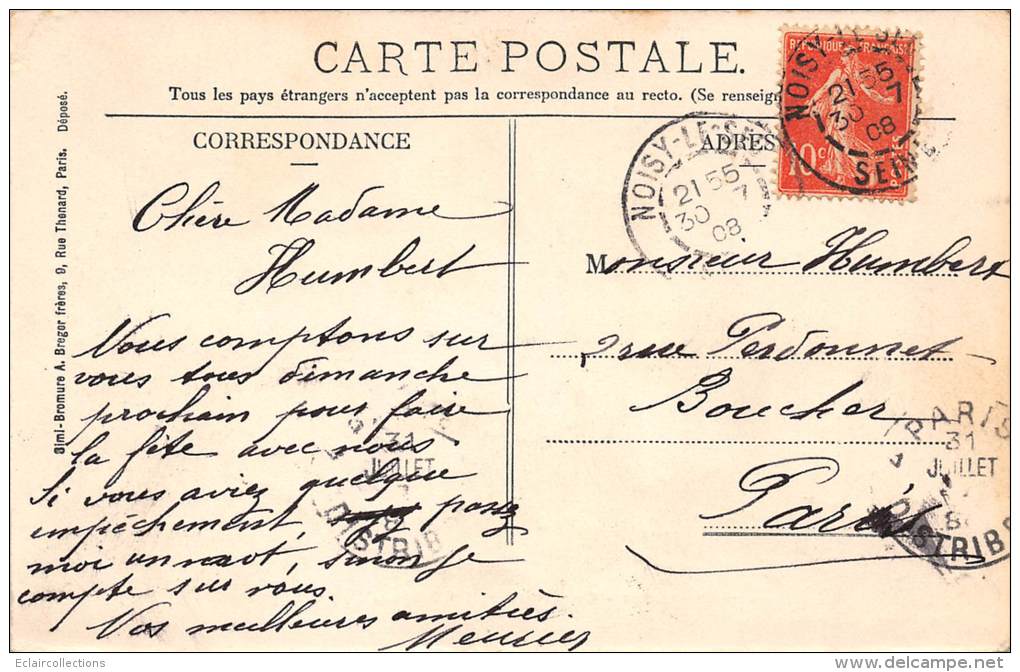 CARTE POSTALE.
Tous les pays étrangers n'acceptent pas la correspondance au recto. (Se renseign
CORRESPONDANCE
ADRES
Simi-Bromure A. Breger frères, 9, Rue Thenard, Paris. Déposé.
Chère Madame
Humbert
Vous comptons sur
vous tous dimanche
prochain pour faire
la fête avec nous
Si vous aviez quelque
empêchement,
moi un mot, sinon je
compte sur vous.
Vos meilleures amitiés
Meunier
REPUBLIQUE FRANÇAISE
10 c
NOISY-LE-S
21 55
30 7
08
SEINE
NOISY-LE-S
21 55
30 7
08
Monsieur Humbert
2 rue Perdonnet
Boucher
Paris
PARIS
31
JUILLET
DISTRIB
31
JUILLET
DISTRIB
Eclaircollections
delcampe.net